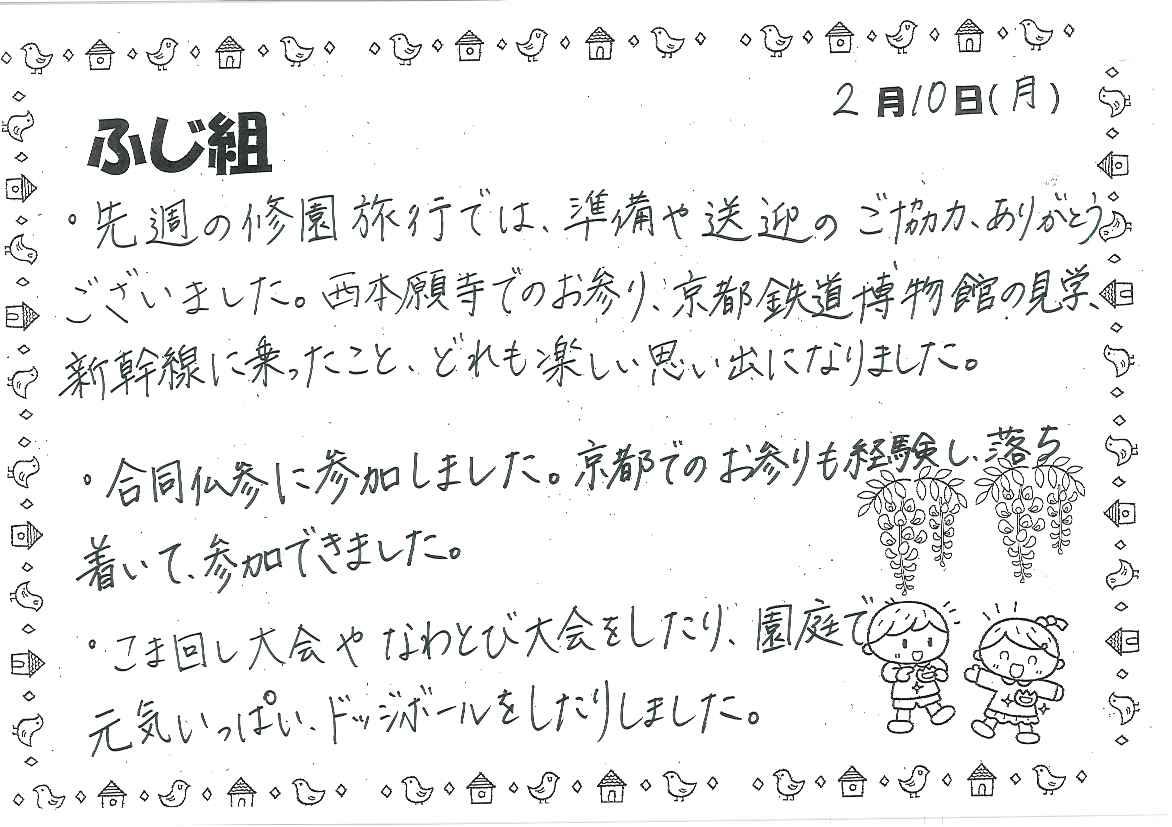 2月10日(月)
ふじ組
・先週の修園旅行では、準備や送迎のご協力、ありがとう
ございました。西本願寺でのお参り、京都鉄道博物館の見学、
新幹線に乗ったこと、どれも楽しい思い出になりました。
・合同仏参に参加しました。京都でのお参りも経験し、落ち
着いて、参加できました。
・こま回し大会やなわとび大会をしたり、園庭で
元気いっぱい、ドッジボールをしたりしました。